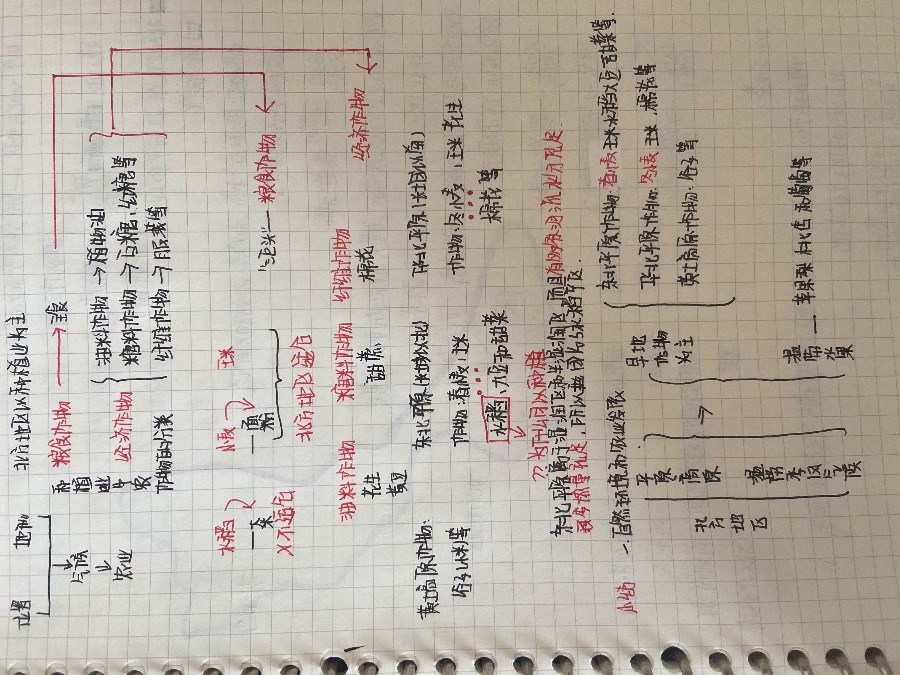 位置 地形 北方地区以种植业为主
气候
农业
种植业中农作物的分类
粮食作物 → 主食
经济作物
油料作物 → 植物油
糖料作物 → 白糖、红糖等
纤维作物 → 衣服等
水稻 小麦 玉米
大米 面粉 "玉米" — 粮食作物
X 不适合 北方地区适合
油料作物 糖料作物 纤维作物 经济作物
花生 甜菜 棉花
黄豆
黄土高原作物: 东北平原(长城以北) 华北平原(长城以南)
谷子小米等 作物:春小麦、玉米 作物:冬小麦、玉米 花生
水稻、大豆和甜菜 棉花等
?? 为什么可以种水稻
东北平原属于湿润区和半湿润区,而且有
小结 一、自然环境与农业发展
北方地区
平原
高原
温带季风气候
旱地作物为主
东北平原作物:春小麦 玉米 水稻 大豆 甜菜等.
华北平原作物:冬小麦 玉米、棉花等
黄土高原作物:谷子等
温带水果 — 苹果 梨 和葡萄等